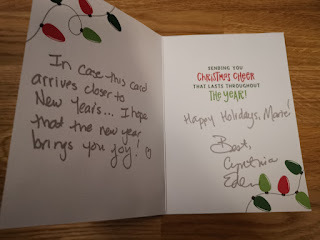 In case this card
arrives closer to
New Years... I hope
that the new year
brings you joy!
SENDING YOU
CHRISTMAS CHEER
THAT LASTS THROUGHOUT
THE YEAR!
Happy Holidays, Marie!
Best,
Cynthia
Eden